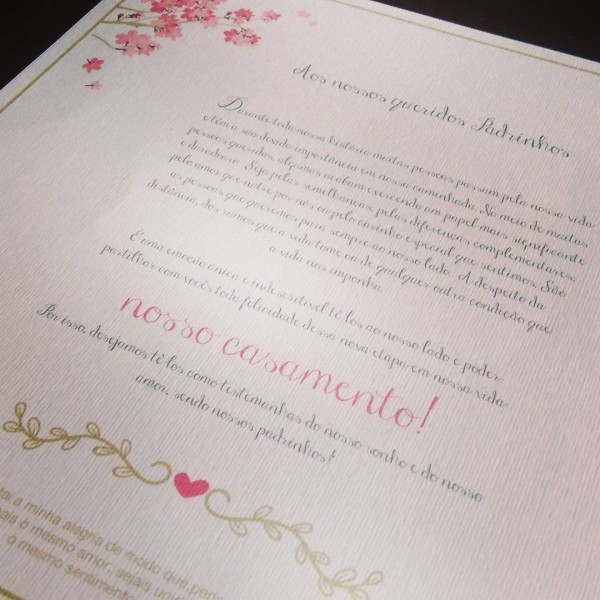 Aos nossos queridos Padrinhos
Durante toda nossa história muitas pessoas passam pela nossa vida
e têm a sua devida importância em nossa caminhada. No meio de muitas
pessoas queridas, algumas acabam exercendo um papel mais significante
e duradouro. Seja pelas semelhanças, pelas diferenças complementares,
pelo amor que nutre por nós ou pelo carinho especial que sentimos. São
as pessoas que queremos para sempre ao nosso lado. A despeito da
distância, dos rumos que a vida tome ou de qualquer outra condição que
a vida nos imponha.
É uma emoção única e indescritível tê-los ao nosso lado e poder
partilhar com vocês toda felicidade dessa nova etapa em nossa vida:
nosso casamento!
Por isso, desejamos tê-los como testemunhas do nosso sonho e do nosso
amor, sendo nossos padrinhos!
a minha alegria de modo que
o mesmo amor, sejais
o mesmo sentimento